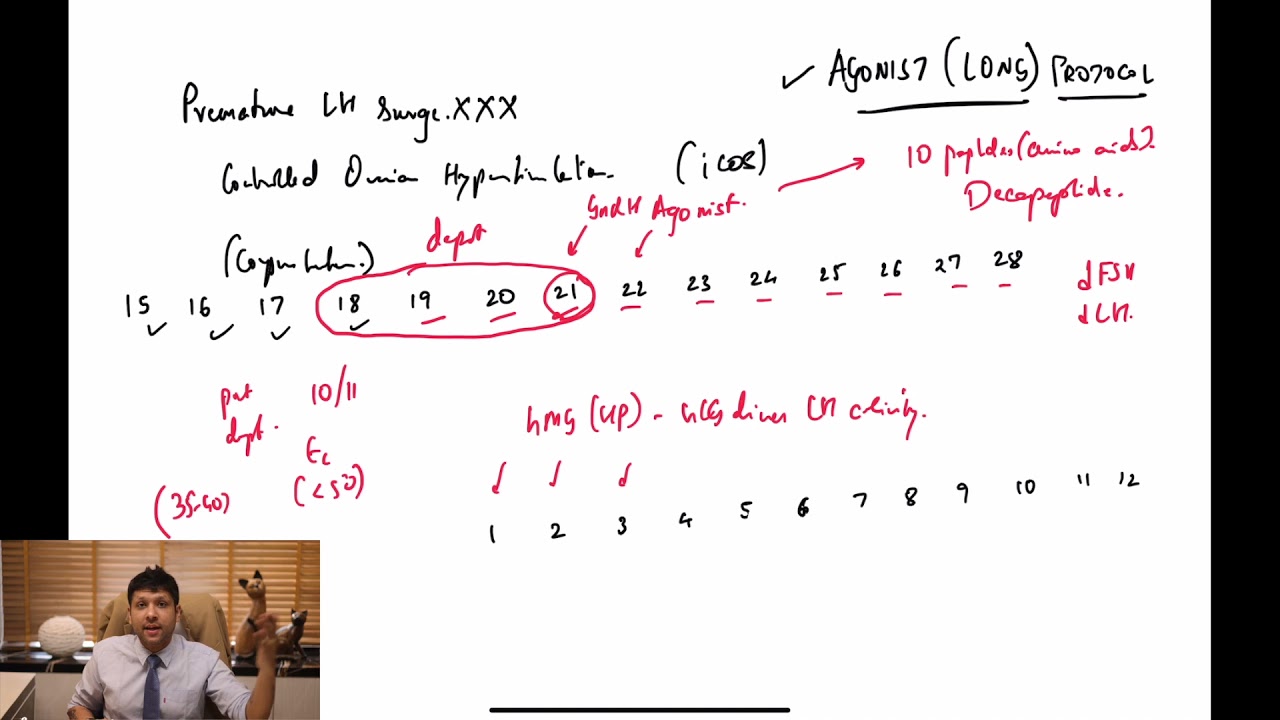 AGONIST (LONG) PROTOCOL
Premature LH surge. XXX
10 peptides (amino acids).
Decapeptide.
(iCOS)
GnRH Agonist.
depot
15 16 17 18 19 20 21 22 23 24 25 26 27 28
↓ FSH
↓ LH.
10/11
hMG (HP) - hCG driven LH activity.
(<50)
(35-40)
1 2 3 4 5 6 7 8 9 10 11 12